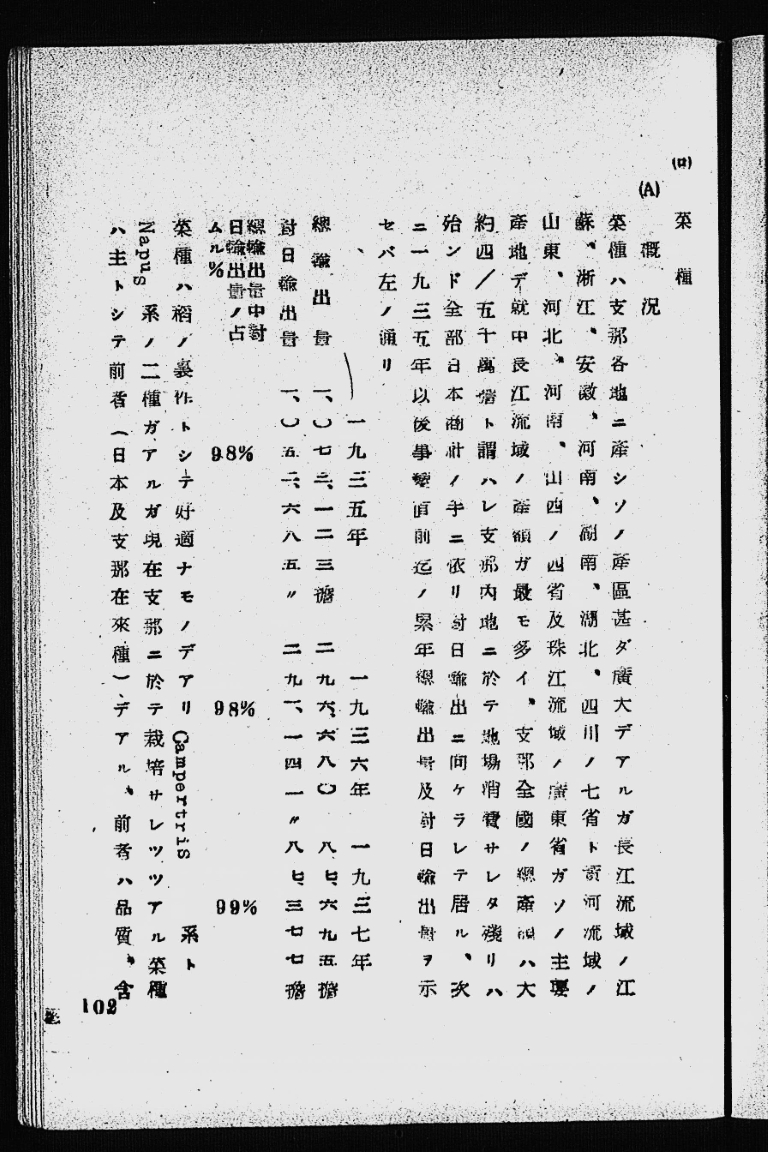 (ロ) 菜種
(A) 概況
菜種ハ支那各地ニ產シソノ產區甚ダ廣大デアルガ長江流域ノ江
蘇、浙江、安徽、河南、湖南、湖北、四川ノ七省ト黃河流域ノ
山東、河北、河南、山西ノ四省及珠江流域ノ廣東省ガソノ主要
產地デ就中長江流域ノ產額ガ最モ多イ、支那全國ノ總產額ハ大
約四/五十萬噸ト謂ハレ支那內地ニ於テ地場消費サレタ殘リハ
殆ンド全部日本商社ノ手ニ依リ對日輸出ニ向ケラレテ居ル、次
ニ一九三五年以後事變直前迄ノ累年總輸出量及對日輸出量ヲ示
セバ左ノ通リ
一九三五年 一九三六年 一九三七年
總輸出量 一、〇七三、一二三擔 二九六、六八〇 八七、六九五擔
對日輸出量 一、〇五二、六八五〃 二九一、一四一〃 八七、三七七擔
總輸出量中對
日輸出量ノ占
ムル% 98% 98% 99%
菜種ハ稻ノ裏作トシテ好適ナモノデアリ Campertris 系ト
Napus 系ノ二種ガアルガ現在支那ニ於テ栽培サレツツアル菜種
ハ主トシテ前者(日本及支那在來種)、デアル、前者ハ品質、含
102